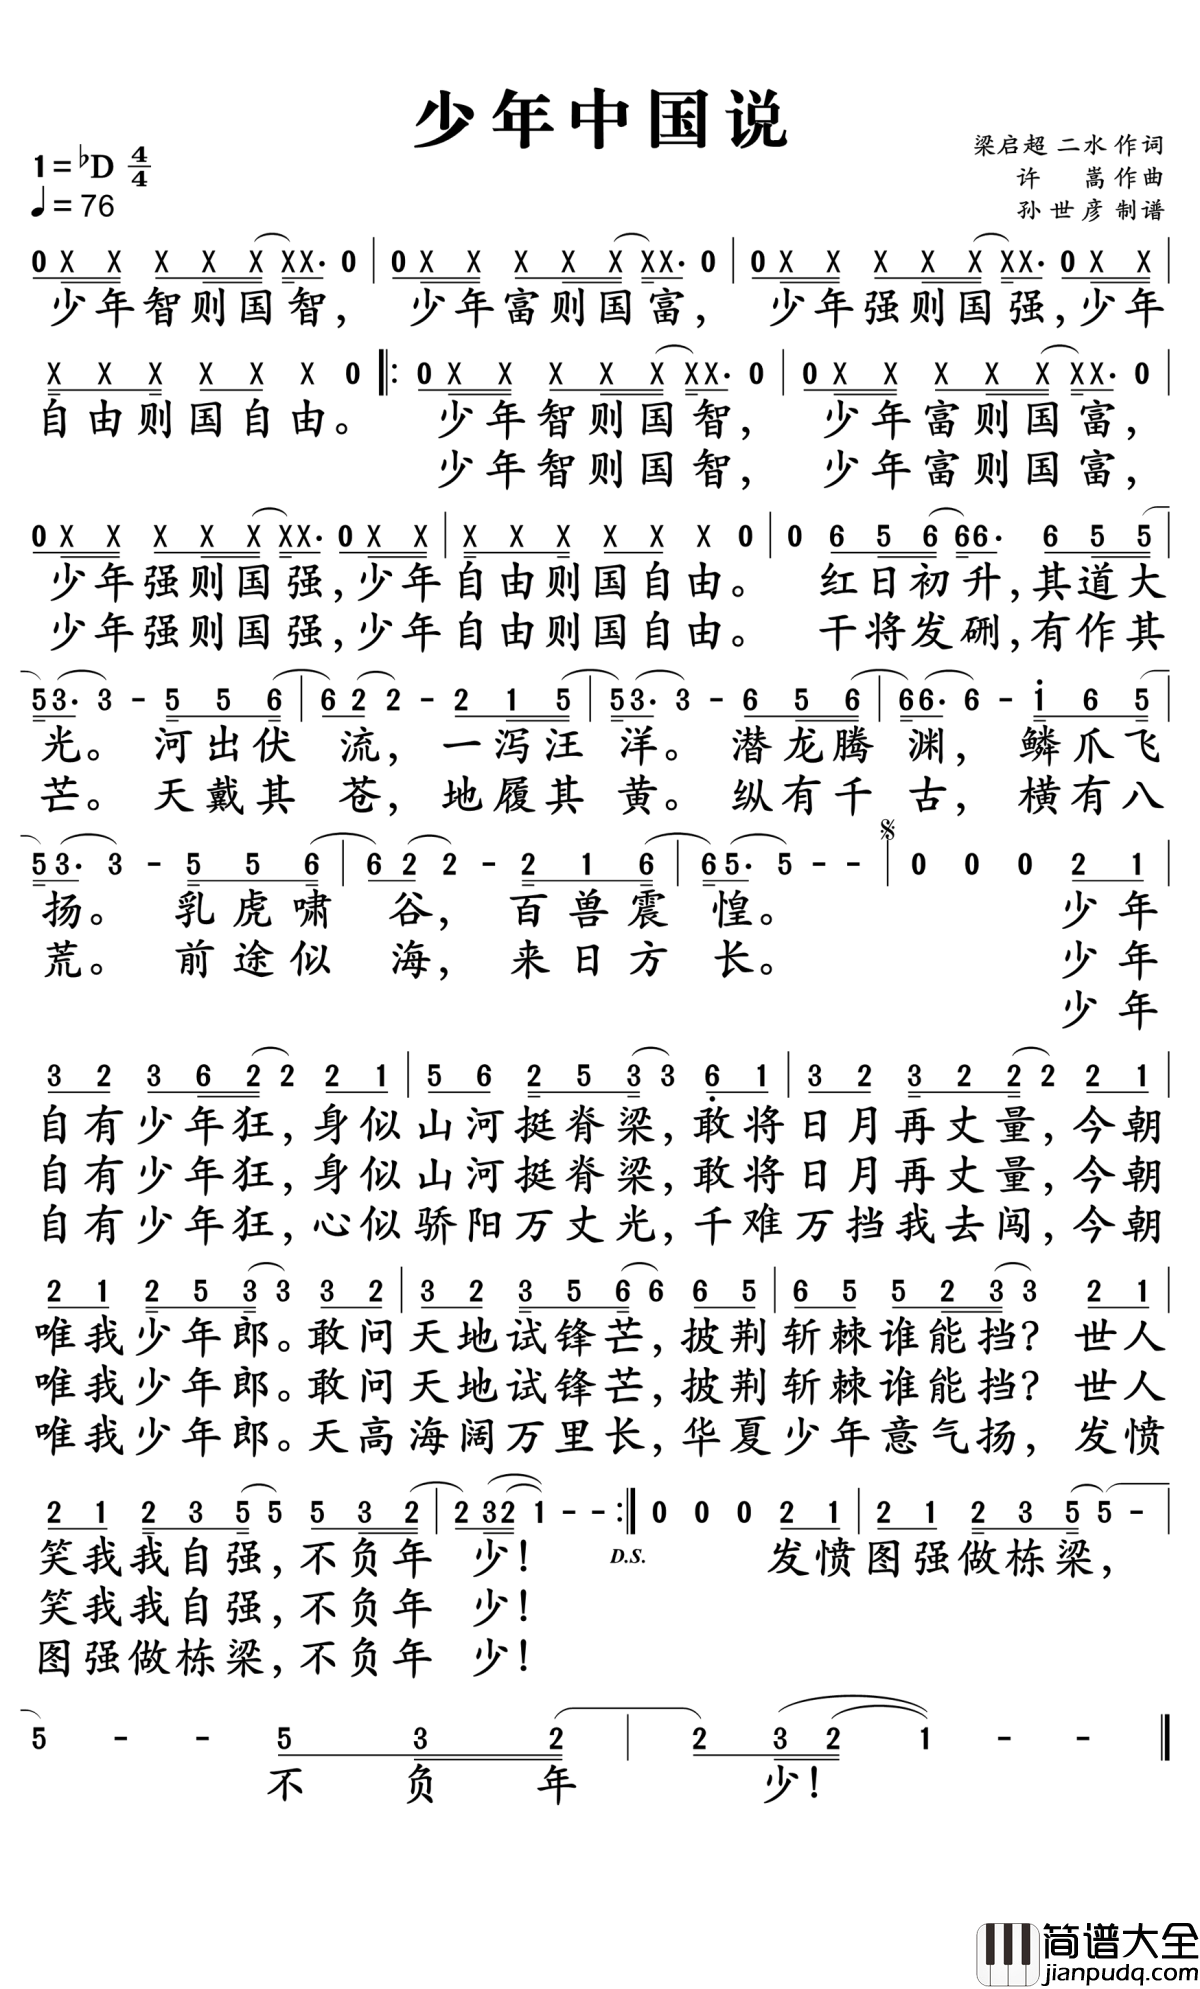 少年中国说
1=♭D 4/4
♩=76
梁启超 二水 作词
许 嵩 作曲
孙世彦 制谱
0 X X X X X X X. 0 | 0 X X X X X X X. 0 | 0 X X X X X X X. 0 X X |
少年智则国智, 少年富则国富, 少年强则国强,少年
X X X X X X 0 |: 0 X X X X X X X. 0 | 0 X X X X X X X. 0 |
自由则国自由。 少年智则国智, 少年富则国富,
少年智则国智, 少年富则国富,
0 X X X X X X X. 0 X X | X X X X X X 0 | 0 6 5 6 6 6. 6 5 5 |
少年强则国强,少年自由则国自由。 红日初升,其道大
少年强则国强,少年自由则国自由。 干将发硎,有作其
5 3. 3 - 5 5 6 | 6 2 2 - 2 1 5 | 5 3. 3 - 6 5 6 | 6 6. 6 - i 6 5 |
光。 河出伏流, 一泻汪洋。 潜龙腾渊, 鳞爪飞
芒。 天戴其苍, 地履其黄。 纵有千古, 横有八
5 3. 3 - 5 5 6 | 6 2 2 - 2 1 6 | 6 5. 5 - - | 0 0 0 2 1 |
扬。 乳虎啸谷, 百兽震惶。 少年
荒。 前途似海, 来日方长。 少年
少年
3 2 3 6 2 2 2 1 | 5 6 2 5 3 3 6 1 | 3 2 3 2 2 2 2 1 |
自有少年狂,身似山河挺脊梁,敢将日月再丈量,今朝
自有少年狂,身似山河挺脊梁,敢将日月再丈量,今朝
自有少年狂,心似骄阳万丈光,千难万挡我去闯,今朝
2 1 2 5 3 3 3 2 | 3 2 3 5 6 6 6 5 | 6 5 5 2 3 3 2 1 |
唯我少年郎。敢问天地试锋芒,披荆斩棘谁能挡? 世人
唯我少年郎。敢问天地试锋芒,披荆斩棘谁能挡? 世人
唯我少年郎。天高海阔万里长,华夏少年意气扬, 发愤
2 1 2 3 5 5 5 3 2 | 2 3 2 1 - - :| 0 0 0 2 1 | 2 1 2 3 5 5 - |
笑我我自强,不负年 少! D.S. 发愤图强做栋梁,
笑我我自强,不负年 少!
图强做栋梁,不负年 少!
5 - - 5 3 2 | 2 3 2 1 - - ‖
不负年 少!
简谱大全
jianpudq.com